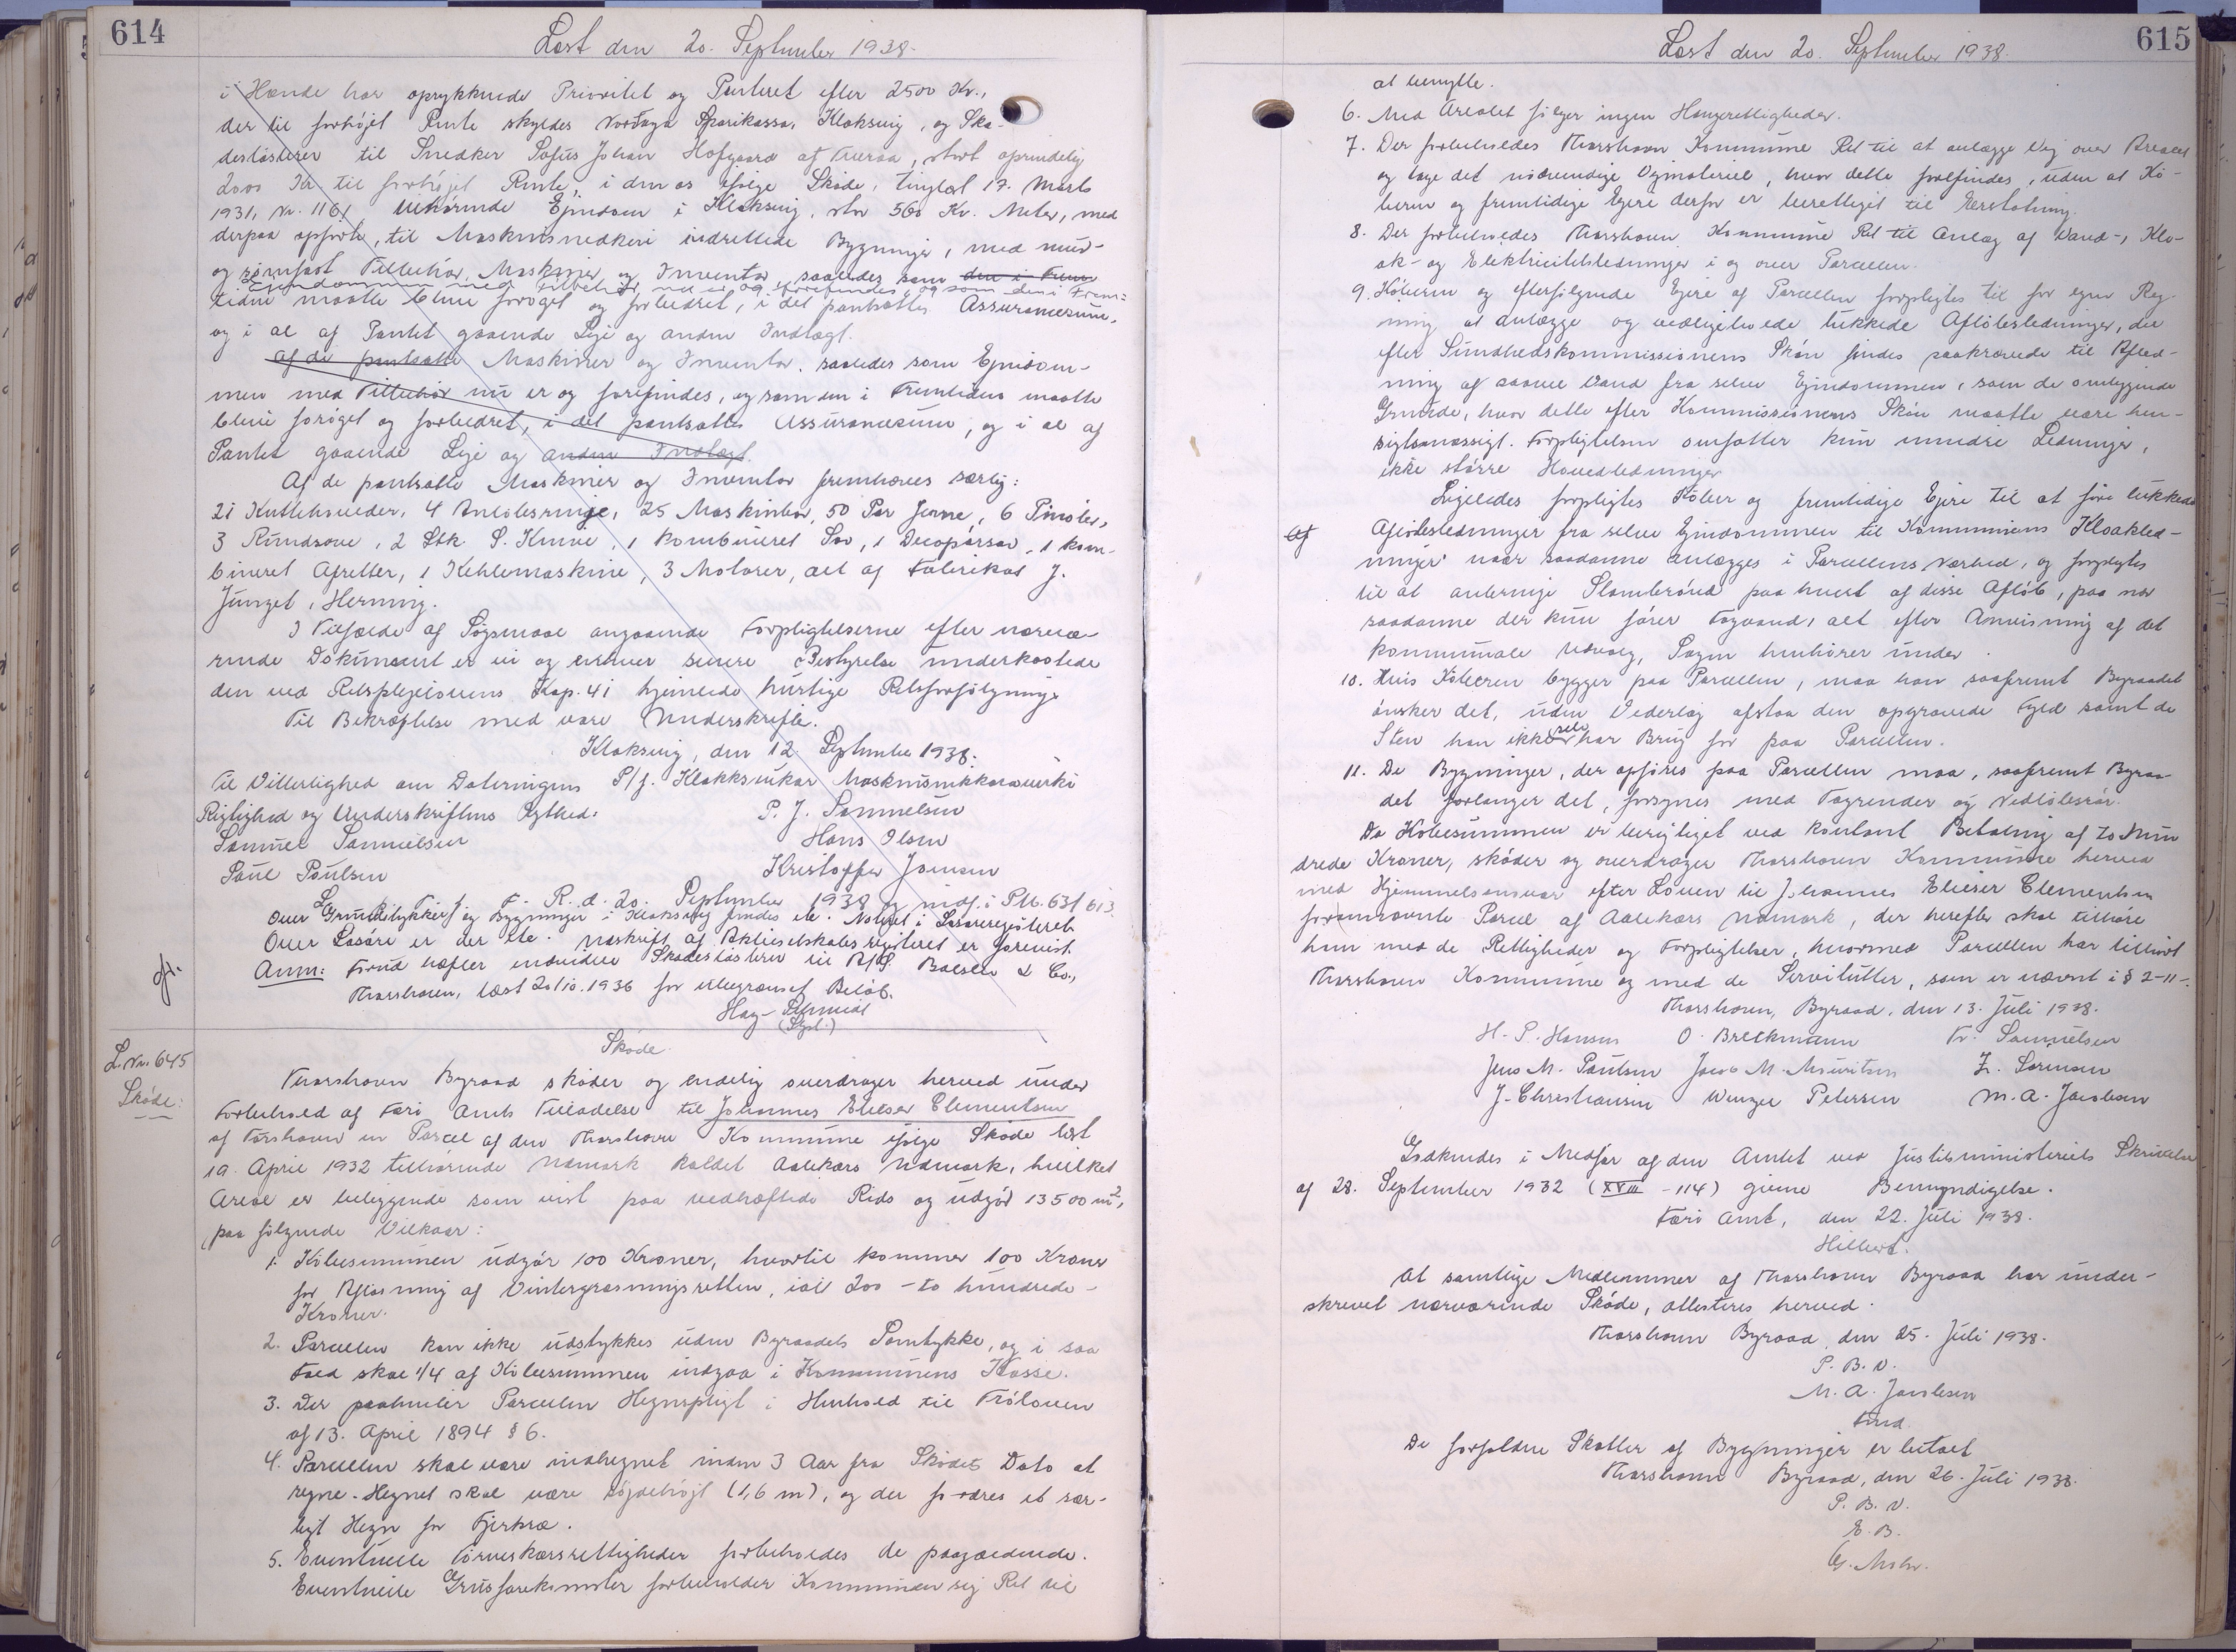 614
Læst den 20. September 1938.
i Hænde har oprykkende Prioritet og Panteret efter 2500 Kr.,
der til forhøjet Rente skyldes Norðoya Sparikassa, Klaksvig, og Ska-
desløsbrev til Snedker Sofus Johan Hofgaard af Tveraa, stort oprindelig
2000 Kr. til forhøjet Rente, i den os ifølge Skøde, tinglæst 17. Marts
1931, Nr. 1161, tilhørende Ejendom i Klaksvig, stor 560 Kv. Meter, med
derpaa opførte, til Maskinsnedkeri indrettede Bygninger, med mur-
og sømfast Tilbehør, Maskiner og Inventar, saaledes som den i Frem
Ejendommen med Tilbehør nu er og forefindes og som den i Frem-
tiden maatte blive forøget og forbedret, i det pantsattes Assurancesum,
og i al af Pantet gaaende Leje og anden Indtægt.
Af de pantsatte Maskiner og Inventar, saaledes som Ejendom-
men med Tilbehør nu er og forefindes, og som den i Fremtiden maatte
blive forøget og forbedret, i det pantsattes Assurancesum, og i al af
Pantet gaaende Leje og anden Indtægt.
Af de pantsatte Maskiner og Inventar fremhæves særlig:
21 Kuttehoveder, 4 Anløbsringe, 25 Maskinbor, 50 Par Jerne, 6 Pinoler,
3 Rundsave, 2 Stk. S. Knive, 1 kombineret Sav, 1 Decoupørsav, 1 kom-
bineret Afretter, 1 Kehlemaskine, 3 Motorer, alt af Fabrikat J.
Junget, Herning.
I Tilfælde af Søgsmaal angaaende Forpligtelserne efter nærvæ-
rende Dokument er vi og enhver senere Bestyrelse underkastede
den ved Retsplejelovens Kap. 41 hjemlede hurtige Retsforfølgning.
Til Bekræftelse med vore Underskrifter.
Klaksvig, den 12. September 1938.
Til Vitterlighed om Dateringens P/f. Klakksvikar Maskinsnikkaravirki
Rigtighed og Underskriftens Ægthed: P. J. Samuelsen
Samuel Samuelsen Hans Olsen
Poul Poulsen Kristoffer Joensen
F. R. d. 20. September 1938 og indf. i Ptb. 631 613.
Over Grundstykket og Bygninger i Klaksvig findes ete. Noteret i Løsøreregisteret.
Over Løsøre er der ete. Udskrift af Aktieselskabsregisteret er forevist.
Anm: Forud hæfter endvidere Skadesløsbrev til A/S. Balslev & Co.,
Thorshavn, læst 20/10. 1936 for ubegrænset Beløb.
Hay-Schmidt
(Sgd.)
Skøde.
L. Nr. 645
Skøde:
Thorshavn Byraad skøder og endelig overdrager herved under
Forbehold af Færø Amts Tilladelse til Johannes Elieser Clementsen
af Torshavn en Parcel af den Thorshavn Kommune ifølge Skøde læst
19. April 1932 tilhørende Udmark kaldet Aalekærs Udmark, hvilket
Areal er beliggende som vist paa vedhæftede Rids og udgør 13500 m²,
paa følgende Vilkaar:
1. Købesummen udgør 100 Kroner, hvortil kommer 100 Kroner
for Afløsning af Vintergræsningsretten, ialt 200 - to hundrede -
Kroner.
2. Parcellen kan ikke udstykkes uden Byraadets Samtykke, og i saa
Fald skal 1/4 af Købesummen indgaa i Kommunens Kasse.
3. Der paahviler Parcellen Hegnspligt i Henhold til Trøloven
af 13. April 1894 § 6.
4. Parcellen skal være indhegnet inden 3 Aar fra Skødets Dato at
regne. Hegnet skal være løgdehøjt (1,6 m), og der fordres et sær-
ligt Hegn for Fjerkræ.
5. Eventuelle Tørveskærsrettigheder forbeholdes de paagældende.
Eventuelle Grusforekomster forbeholder Kommunen sig Ret til
615
Læst den 20. September 1938.
at benytte.
6. Med Arealet følger ingen Haugerettigheder.
7. Der forbeholdes Thorshavn Kommune Ret til at anlægge Vej over Arealet
og tage det nødvendige Vejmateriel, hvor dette forefindes, uden at Kø-
beren og fremtidige Ejere derfor er berettiget til Erstatning.
8. Der forbeholdes Thorshavn Kommune Ret til Anlæg af Vand-, Klo-
ak- og Elektricitetsledninger i og over Parcellen.
9. Køberen og efterfølgende Ejere af Parcellen forpligtes til for egen Reg-
ning at anlægge og vedligeholde lukkede Afløbsledninger, der
efter Sundhedskommissionens Skøn findes paakrævede til Afled-
ning af saavel Vand fra selve Ejendommen, som de omliggende
Grunde, hvor dette efter Kommissionens Skøn maatte være hen-
sigtsmæssigt. Forpligtelsen omfatter kun mindre Ledninger,
ikke større Hovedledninger.
Ligeledes forpligtes Køber og fremtidige Ejere til at føre lukkede
Afløbsledninger fra selve Ejendommen til Kommunens Kloakled-
ninger naar saadanne anlægges i Parcellens Nærhed, og forpligtes
til at anbringe Slambrønd paa hvert af disse Afløb, paa nær
saadanne der kun fører Tagvand, alt efter Anvisning af det
kommunale Udvalg, Sagen henhører under.
10. Hvis Køberen bygger paa Parcellen, maa han saafremt Byraadet
ønsker det, uden Vederlag afstaa den opgravede Fyld samt de
Sten han ikke selv har Brug for paa Parcellen.
11. De Bygninger, der opføres paa Parcellen maa, saafremt Byraa-
det forlanger det, forsynes med Tagrender og Nedløbsrør.
Da Købesummen er berigtiget ved kontant Betaling af to Hun
drede Kroner, skøder og overdrager Thorshavn Kommune herved
med Hjemmelsansvar efter Loven til Johannes Elieser Clementsen
forannævnte Parcel af Aalekærs Udmark, der herefter skal tilhøre
ham med de Rettigheder og Forpligtelser, hvormed Parcellen har tilhørt
Thorshavn Kommune og med de Servitutter, som er nævnt i § 2-11-.
Thorshavn, Byraad, den 13. Juli 1938.
H. P. Hansen O. Breckmann Tr. Samuelsen
Jens M. Poulsen Jacob M. Mouritsen Z. Sørensen
J. Christiansen Wenzel Petersen M. A. Jacobsen
Godkendes i Medfør af den Amtet ved Justitsministeriets Skrivelse
af 28. September 1932 (XVIII - 114) givne Bemyndigelse.
Færø Amt, den 22. Juli 1938.
Hilbert.
At samtlige Medlemmer af Thorshavn Byraad har under-
skrevet nærværende Skøde, attesteres herved.
Thorshavn Byraad, den 25. Juli 1938.
P. B. V.
M. A. Jacobsen
Fmd.
De forfaldne Skatter af Bygninger er betalt
Thorshavn Byraad, den 26. Juli 1938.
P. B. V.
E. B.
G. Mohr.